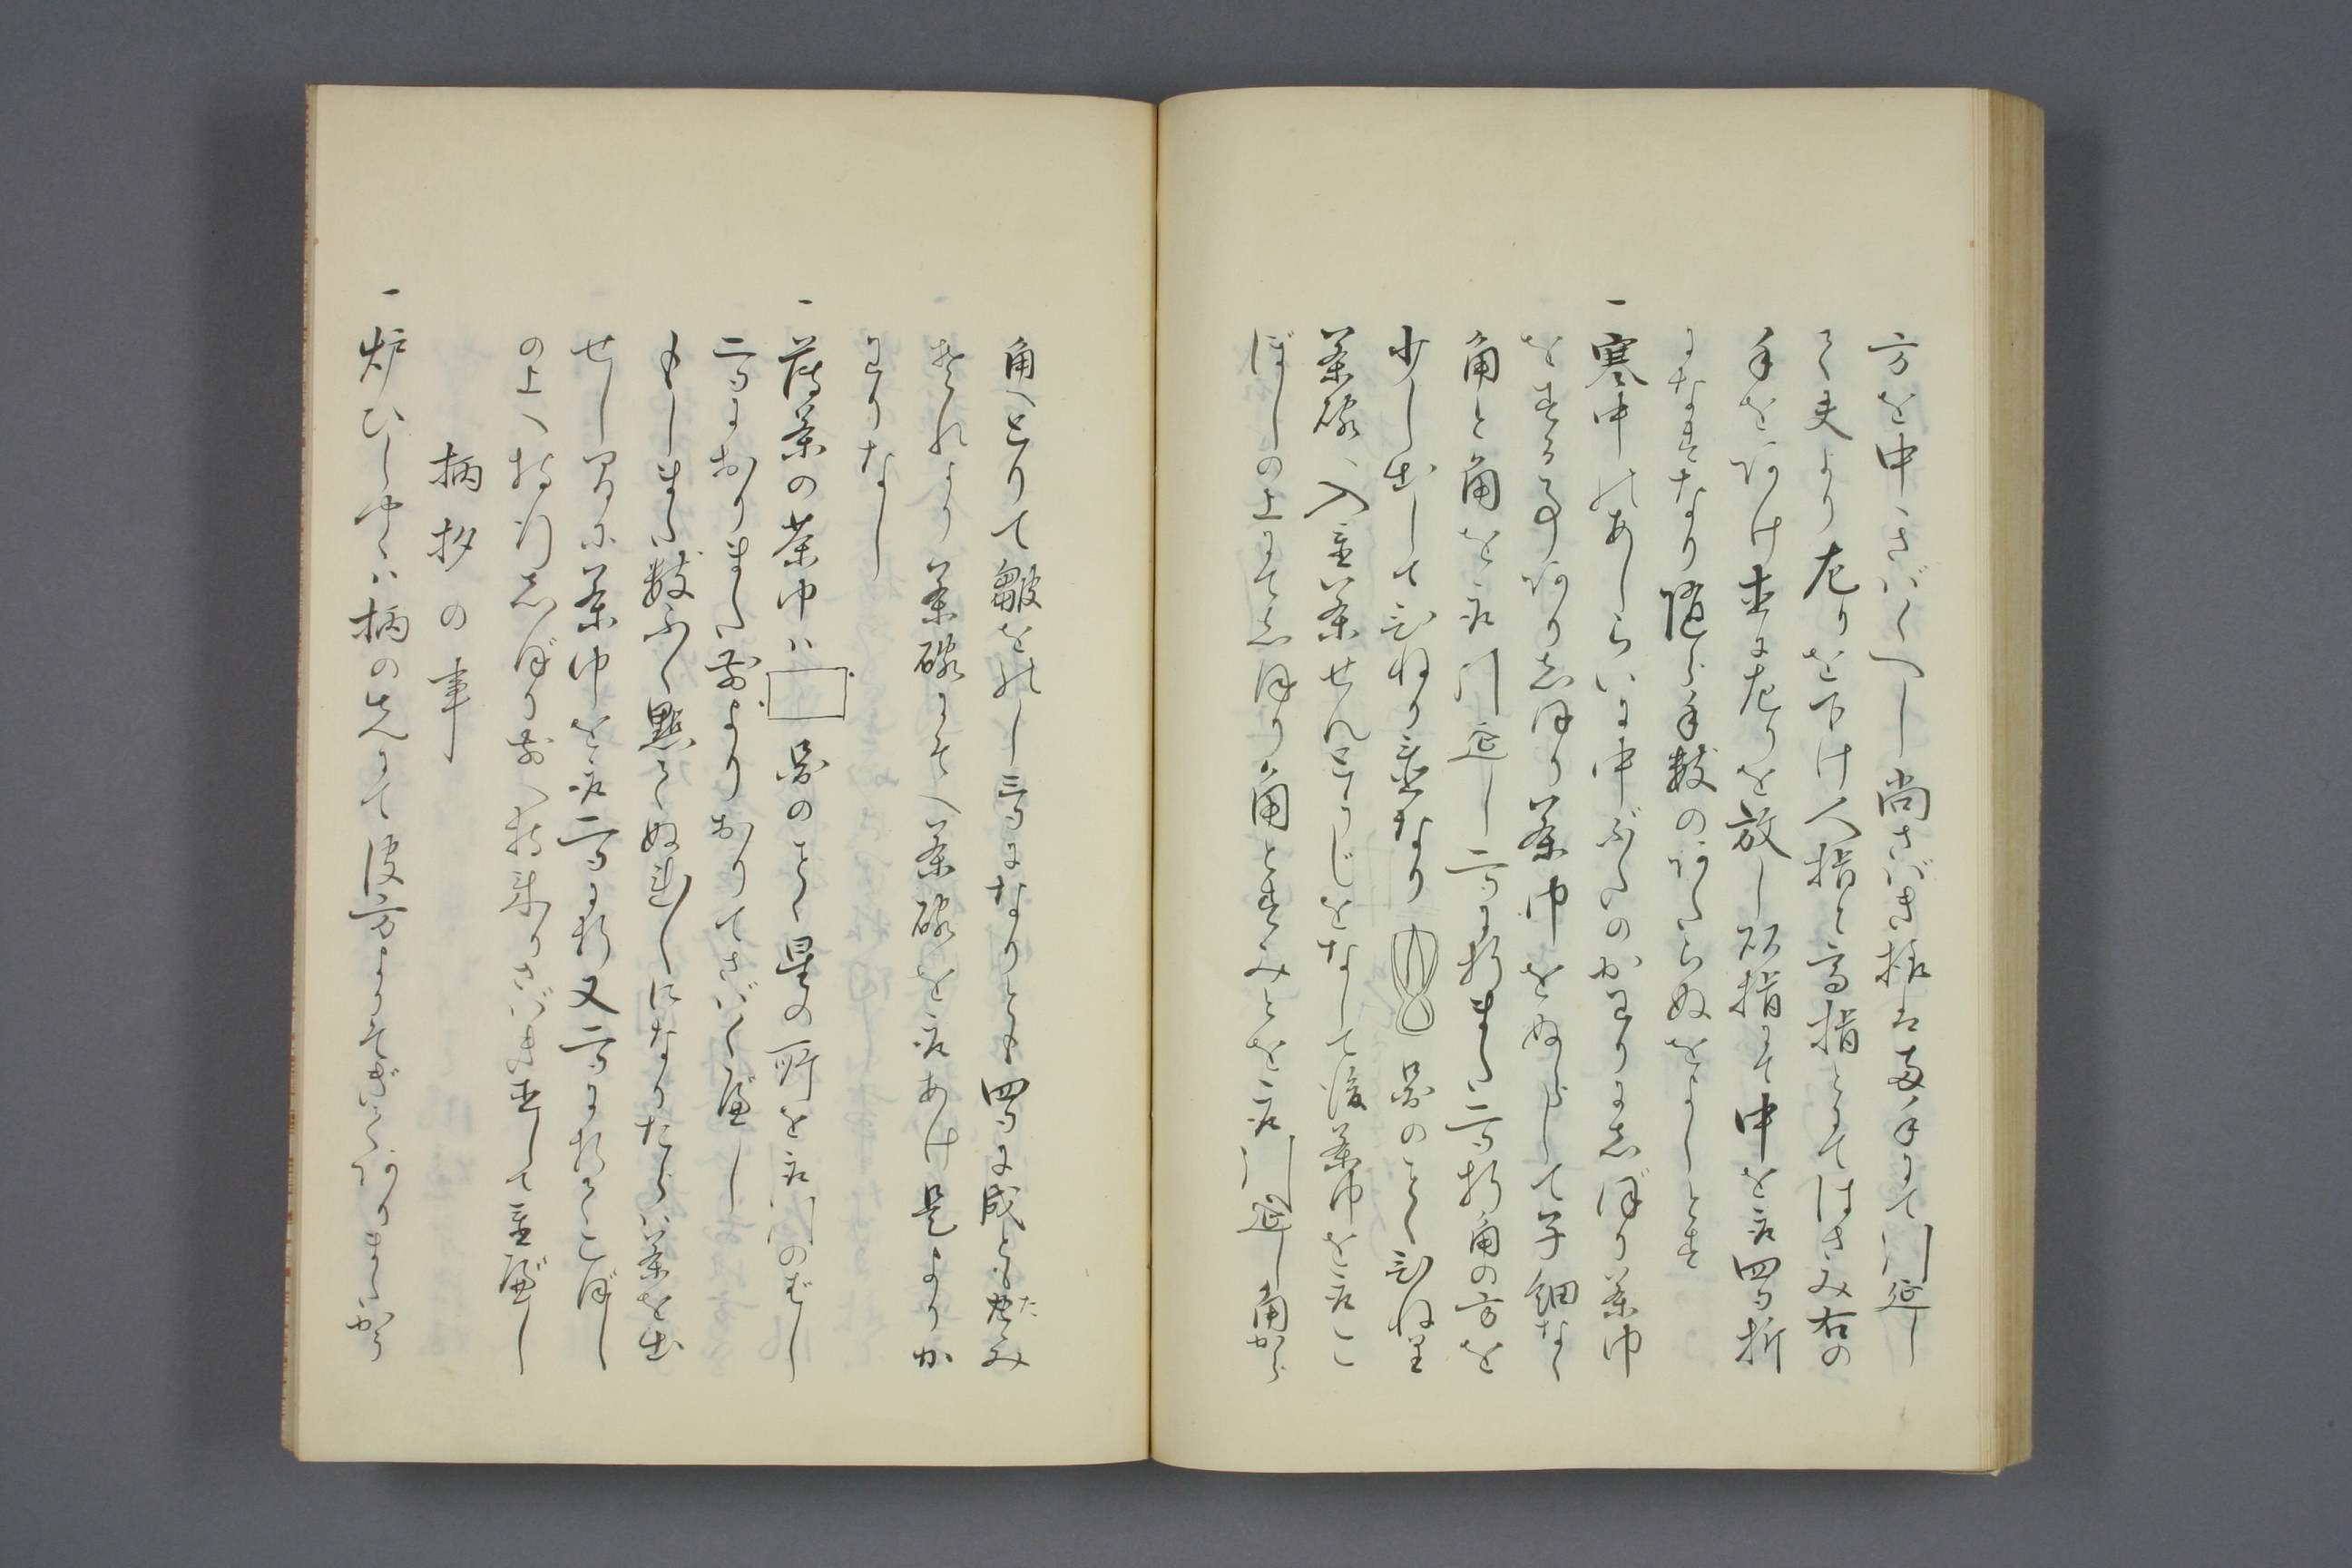 方を中へさばくへし尚さばき様は両手にて引延し
て夫より左りを下け人指と高指とにてはさみ右の
手をはなけ直に左りを放し頭指にて中を取四つ折
になすなり随分手数のかゝらぬをよしとす
一寒中のあしらいは中ぶたのかわりにしぼり茶巾
をする事ありしほり茶巾をぬらして子細なく
角と角を取引延し二つに折また二つ折角の方を
少し出してひねり置なり 図のことくひねり
茶碗へ入置茶せんとうじをなして後茶巾を取こ
ぼしの上にてしほり角とすみとを取引延し角から
角へとりて皺をのし三つになりとも四つに成ともたゝみ
それより茶碗にそへ茶碗を取あけ是よりか
わりなし
一薄茶の茶巾は 図のことく星の所を取引のばし
二つにおりまた前よりおりてさばくべし
もしまた数ふく點てぬれになりたらは茶を出
せし間に茶巾を取二つに折又二つに折てこぼし
の上へ持行しぼり前へ持来りさばき直して置べし
柄杓の事
一炉ひしやくは柄の先にて後方よりそぎてありまたから